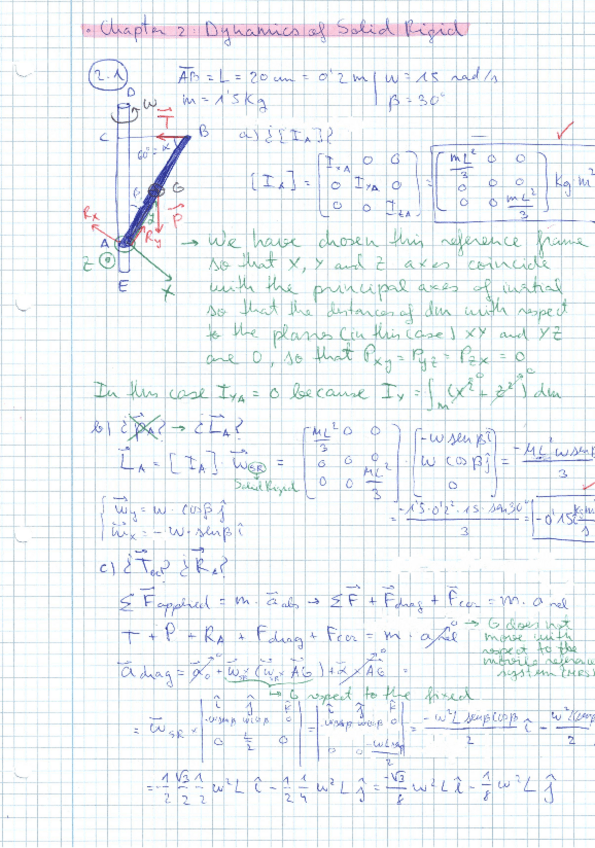 Chapter 2: Dynamics of Solid Rigid
2.1
AB = L = 20 cm = 0'2 m | ω = 15 rad/s
m = 1'5 Kg | β = 30°
D
ω
T
C
B
60° = α
a) ¿[I_A]?
[I_A] = [I_XA 0 0; 0 I_YA 0; 0 0 I_ZA] = [mL²/3 0 0; 0 0 0; 0 0 mL²/3] Kg m²
G
P
R_x
R_y
A
Z
E
X
→ We have chosen this reference frame
so that X, Y and Z axes coincide
with the principal axes of inertial
so that the distances of dm with respect
to the planes (in this case) XY and YZ
are 0, so that P_xy = P_yz = P_zx = 0
In this case I_YA = 0 because I_Y = ∫_m (x² + z²) dm
b) → ¿L_A?
L_A = [I_A] · ω_SR = [ML²/3 0 0; 0 0 0; 0 0 ML²/3] · [-ω senβ î; ω cosβ ĵ; 0] = -ML² ω senβ / 3
Solid Rigid
ω_y = ω · cosβ ĵ
ω_x = -ω · senβ î
= -1'5 · 0'2² · 15 · sen30° / 3 = -0'15
c) ¿T_BC? ¿R_A?
ΣF_applied = m · a_abs → ΣF + F_drag + F_cor = m · a_rel
T + P + R_A + F_drag + F_cor = m · a_rel 0
→ G does not
move with
respect to the
movile reference
system (MRS)
a_drag = a_0 + ω_SR × (ω_SR × AG) + α × AG =
→ G respect to the fixed
= ω_SR × |î ĵ k; -ω senβ ω cosβ 0; 0 L/2 0| = |î ĵ k; -ω senβ ω cosβ 0; 0 0 -ωL senβ/2| = -ω² L senβ cosβ / 2 î -
= -1/2 √3/2 1/2 ω² L î - 1/2 1/4 ω² L ĵ = -√3/8 ω² L î - 1/8 ω² L ĵ